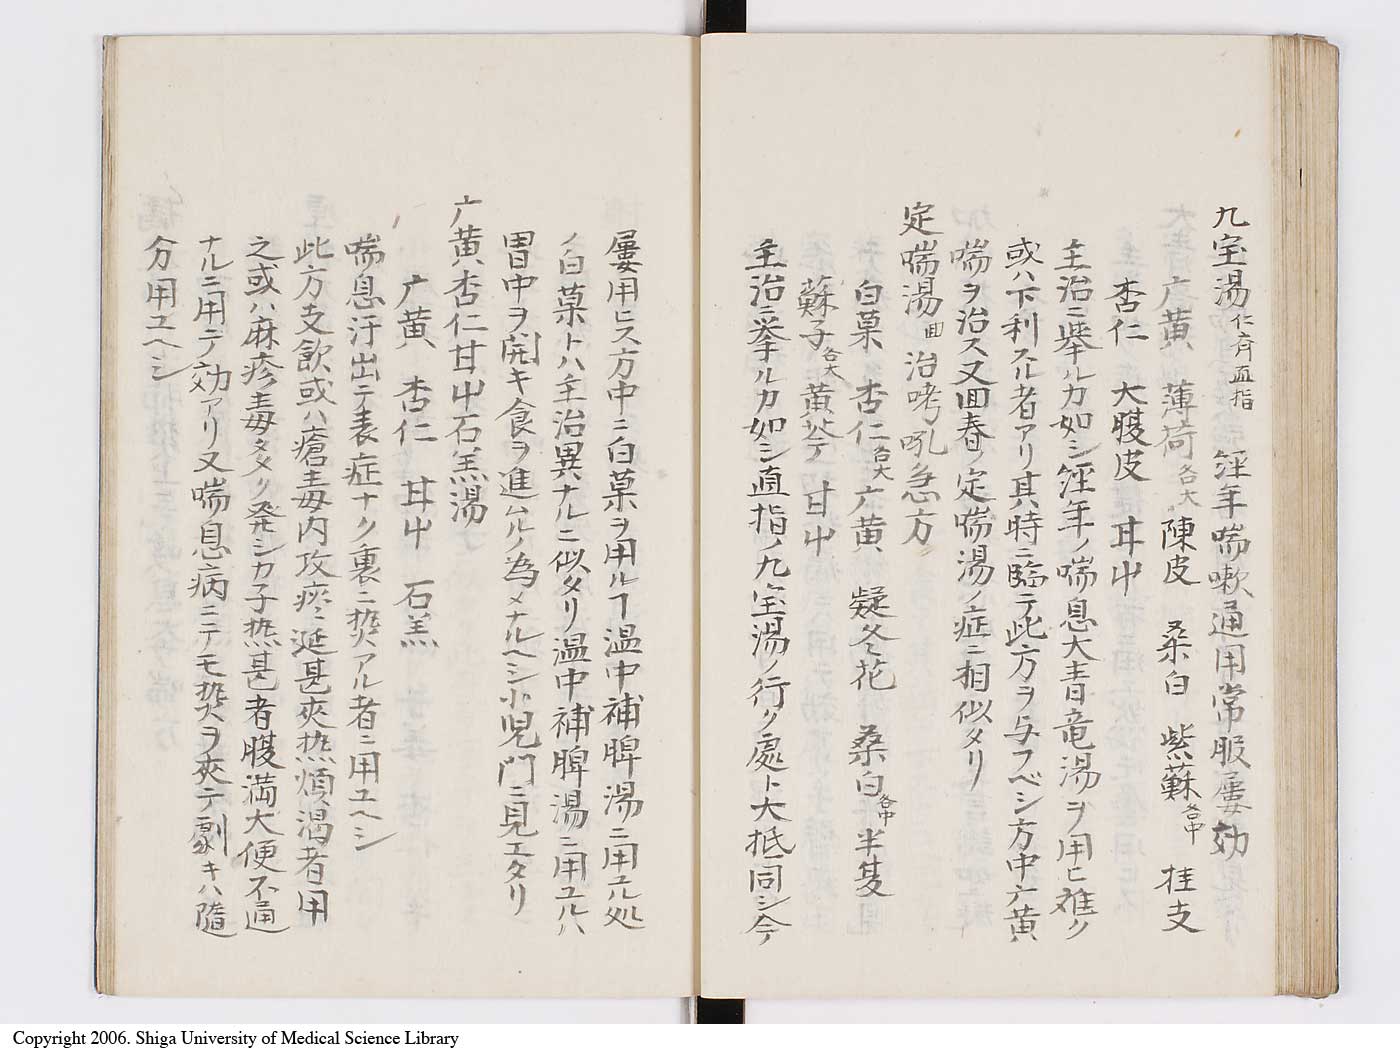 九宝湯 仁斉直指 経年喘嗽通用常服屡効
广黄 薄荷各大 陳皮 桑白 紫蘇各中 桂支
杏仁 大腹皮 甘艸
主治ニ挙ルカ如シ経年ノ喘息大青竜湯ヲ用ヒ難ク
或ハ下利スル者アリ其時ニ臨テ此方ヲ与フベシ方中广黄
喘ヲ治ス又回春ノ定喘湯ノ症ニ相似タリ
定喘湯 回 治哮吼急方
白菓 杏仁各大 广黄 疑冬花 桑白各中 半夏
蘇子各大 黄芩 甘艸
主治ニ挙ルカ如シ直指ノ九宝湯ノ行ク處ト大抵同シ今
屡用ヒス方中ニ白菓ヲ用ルヿ温中補脾湯ニ用ユル処
ノ白菓トハ主治異ナルニ似タリ温中補脾湯ニ用ユルハ
胃中ヲ開キ食ヲ進ムルノ為メナルヘシ小児門ニ見エタリ
广黄杏仁甘艸石羔湯
广黄 杏仁 甘艸 石羔
喘息汗出テ表症ナク裏ニ熱アル者ニ用ユヘシ
此方支飲或ハ瘡毒内攻痰延甚夾熱煩渇者用
之或ハ麻疹毒タメク発シカ子熱甚者腹満大便不通
ナルニ用テ効アリ又喘息病ニテモ熱ヲ夾テ劇キハ随
分用ユヘシ
Copyright 2006. Shiga University of Medical Science Library